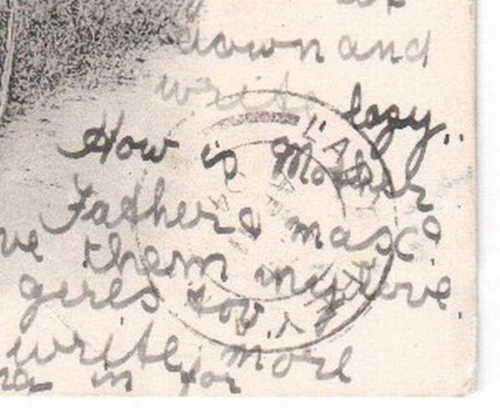 down and
write lazy..
How is Mother
Father & max?
ve them my love
write more
in for